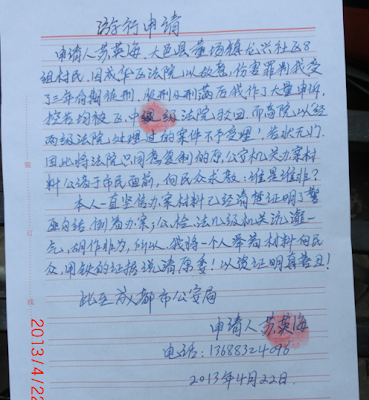 游行申请
申请人苏英海，大邑县董场镇龙兴社区8
组村民。因成华区法院，以故意，伤害罪判我受
了三年有期徒刑。刑期刑满后我作了大量申诉，
控告均被区，中级法院驳回。而高院以经
两级法院处理过的案件不予受理！告状无门，
因此将法院只同意复制的原，公字机关办案材
料公诸于市民面前，向民众求教：谁是谁非？
本人一直坚信办案材料已经清楚证明了警
匪勾结，倒着办案；公，检，法几级机关沆瀣一
气，胡作非为，所以，我将一个人举着材料向民
众，用铁的证据说清原委！以资证明真善丑！
此至 成都市公安局
申请人 苏英海
电话：13688324096
2013年4月22日.
2013/4/22